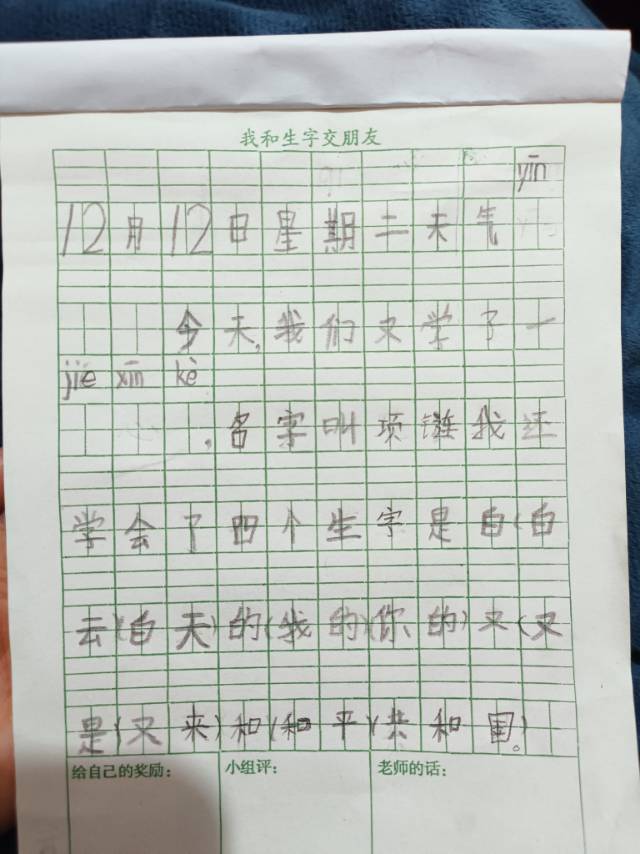 我和生字交朋友
yīn
12月12日星期二天气
今天,我们又学了一
jié xīn kè
,名字叫项链我还
学会了四个生字是白(白
云)(白天)的(我的)(你的)又(又
是)(又来)和(和平)(共和国)。
给自己的奖励: 小组评: 老师的话: